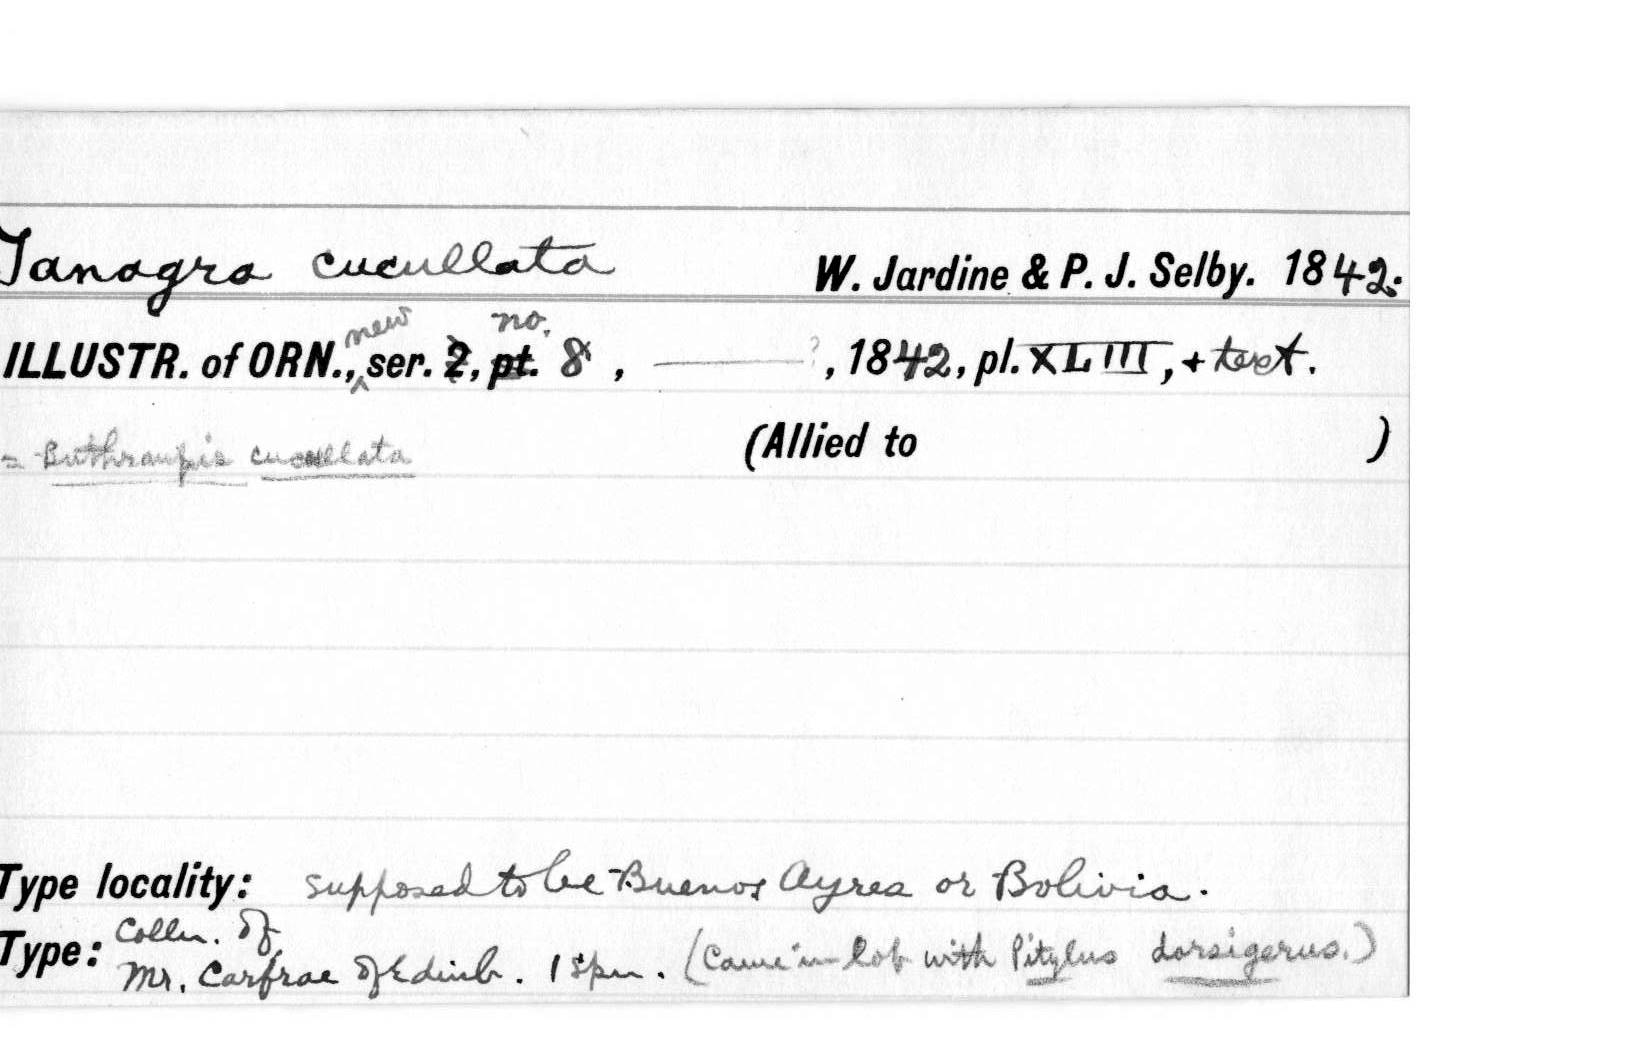 Tanagra cucullata W. Jardine & P. J. Selby. 1842.
ILLUSTR. of ORN., new ser. 2, pt. no. 8, ——? , 1842, pl. XLIII, + text.
= Buthraupis cucullata (Allied to )
Type locality: supposed to be Buenos Ayres or Bolivia.
Type: Colln. of
Mr. Carfrae of Edinb. 1 spn. (Came in lot with Pitylus dorsigerus.)